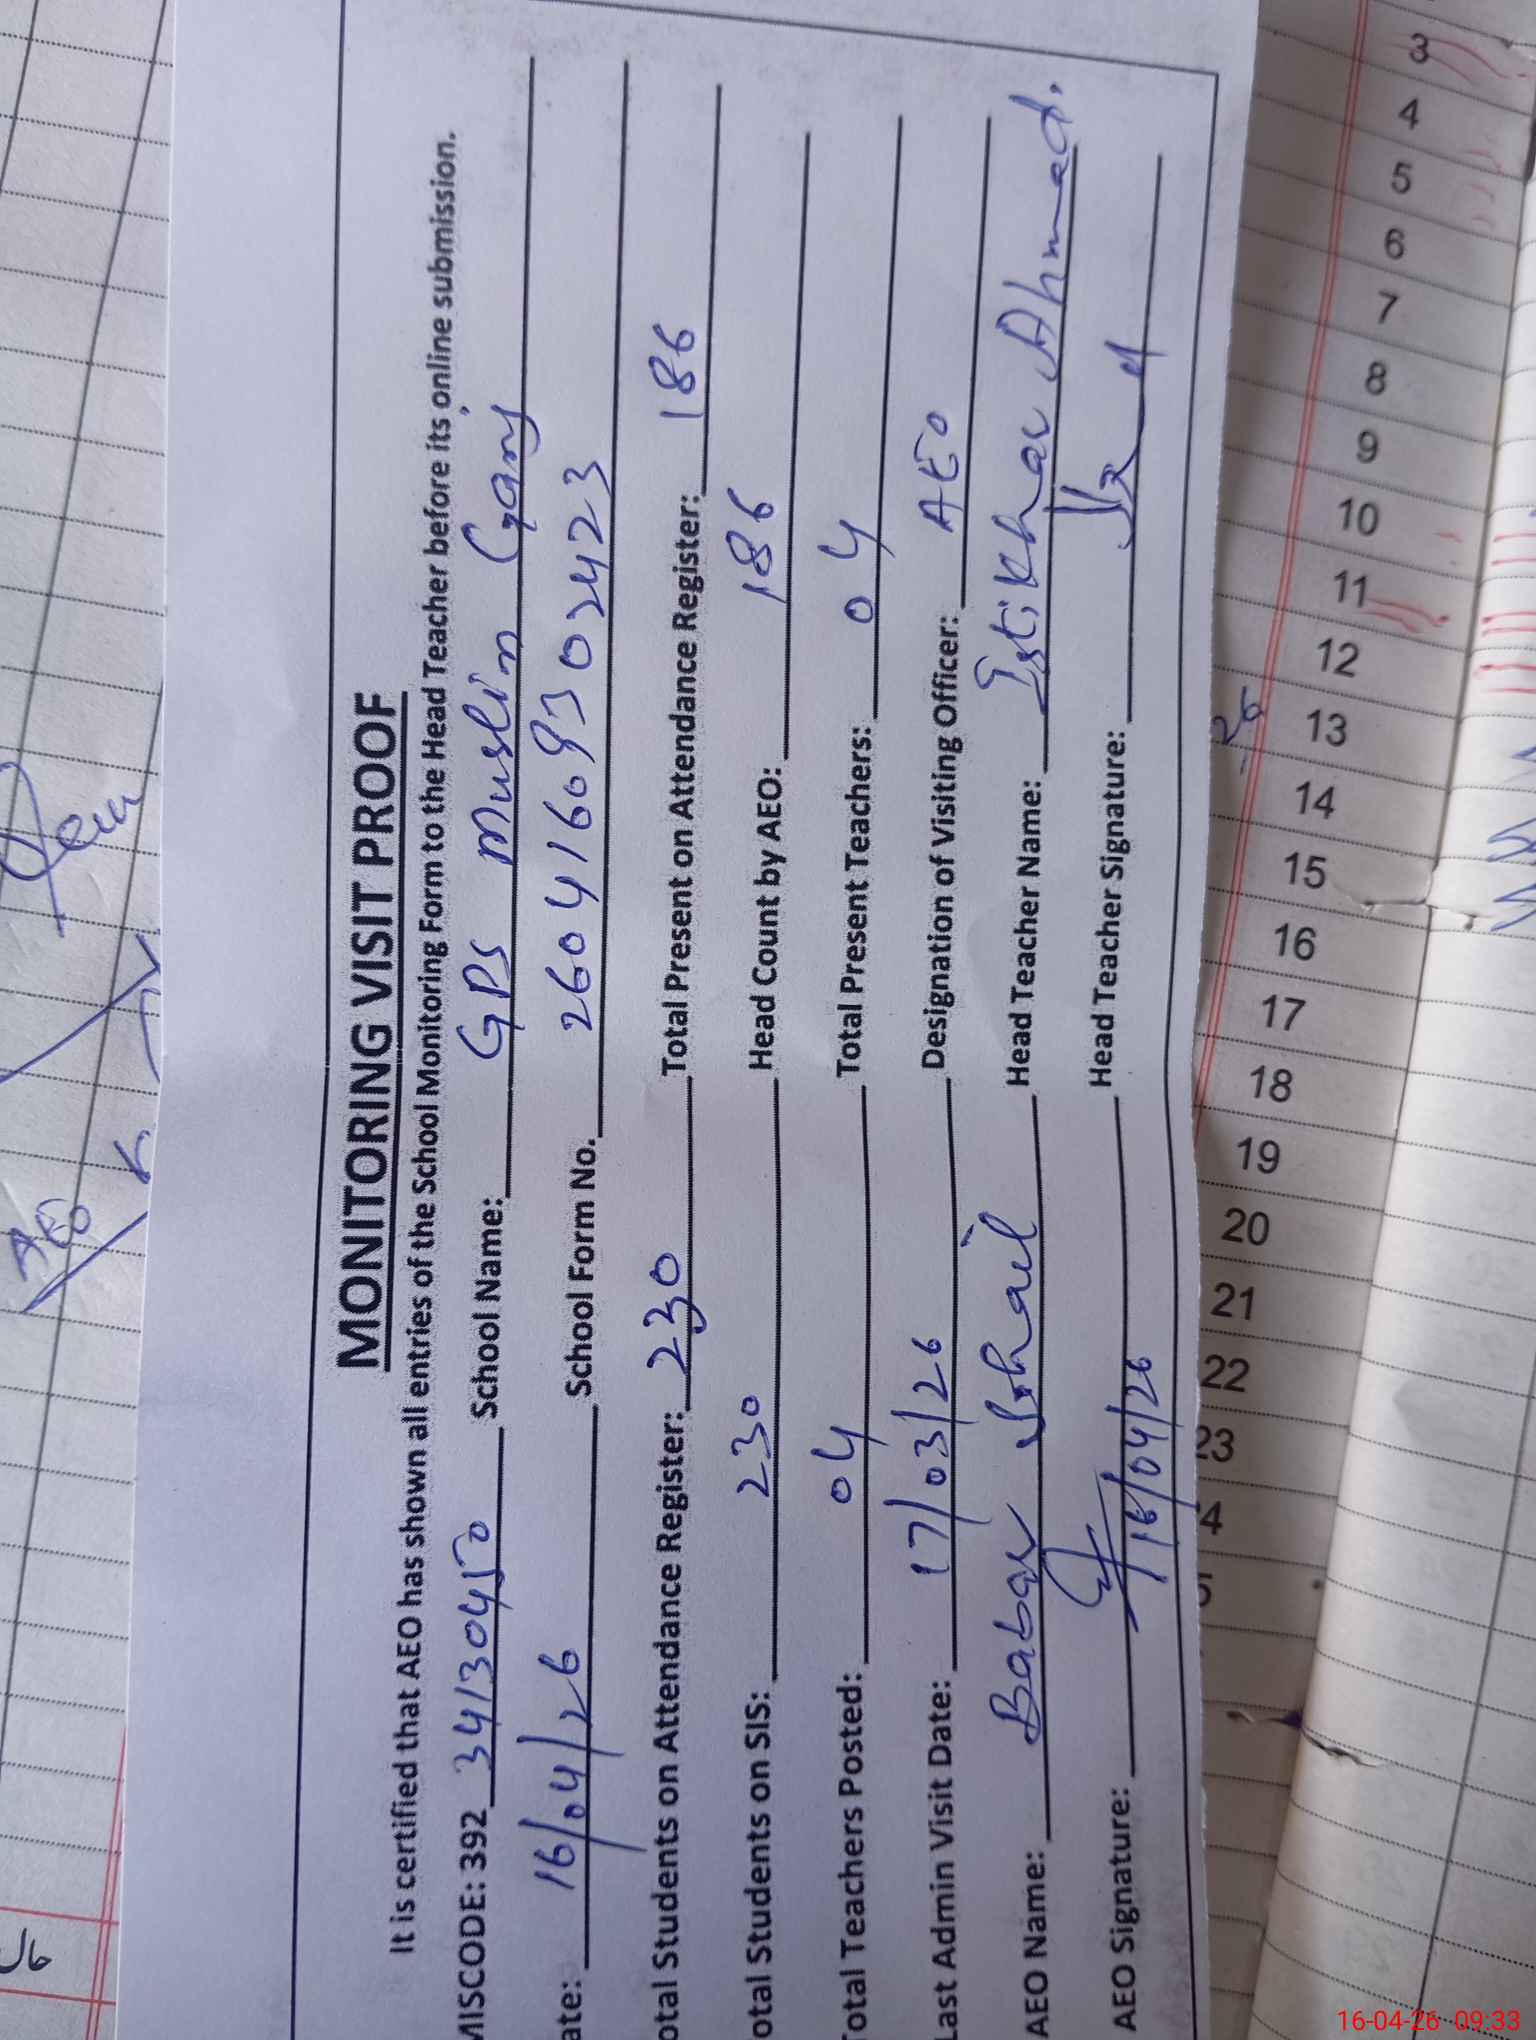 MONITORING VISIT PROOF
It is certified that AEO has shown all entries of the School Monitoring Form to the Head Teacher before its online submission.
MISCODE: 392 34130450 School Name: GPS Muslim Ganj
ate: 16/04/26 School Form No. 2604160930 2423
otal Students on Attendance Register: 230 Total Present on Attendance Register: 186
otal Students on SIS: 230 Head Count by AEO: 186
Total Teachers Posted: 04 Total Present Teachers: 04
Last Admin Visit Date: 17/03/26 Designation of Visiting Officer: AEO
AEO Name: Babar Sohail Head Teacher Name: Istikhar Ahmad.
AEO Signature: 16/04/26 Head Teacher Signature:
AEO
3
4
5
6
7
8
9
10
11
12
13
14
15
16
17
18
19
20
21
22
23
4
16-04-26 09:33